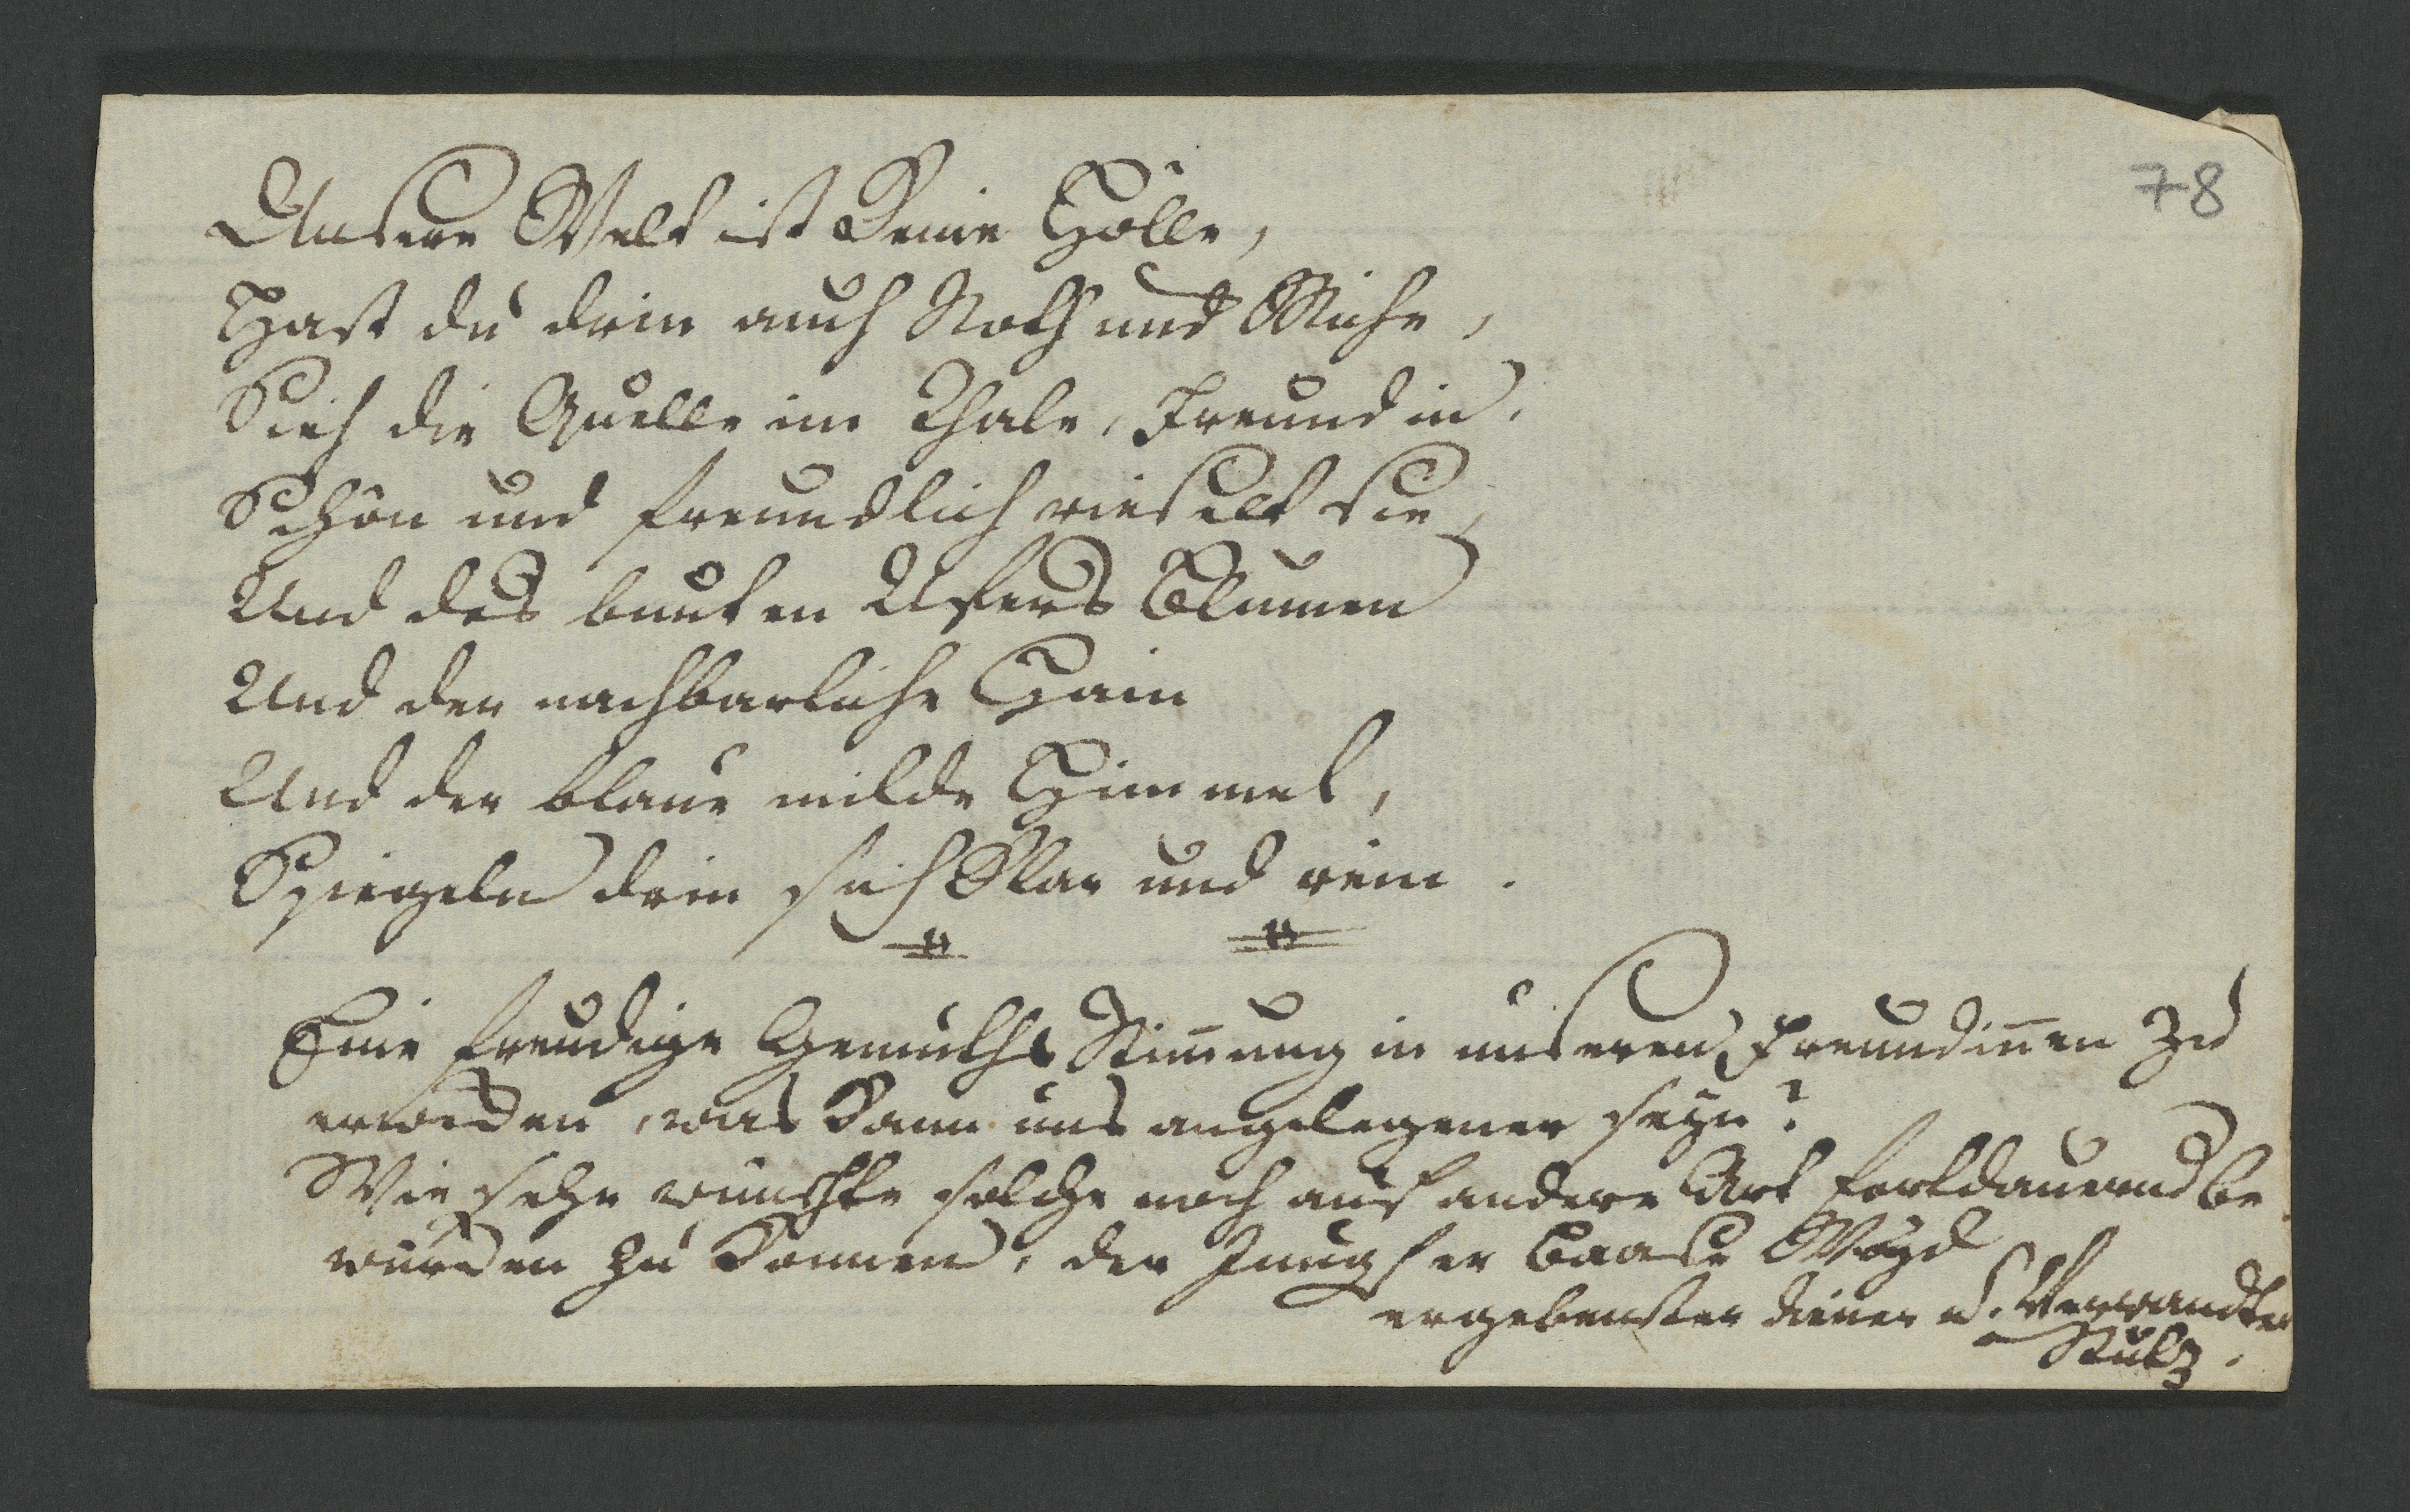 78
Unsere Welt ist Keine Hölle,
Hast du drin auch Noth und Mühe,
Sieh die Quelle im Thale, Freundin,
Schön und freundlich rieselt sie,
Und des bunten Ufers Blumen
Und der nachbarliche Hain
Und der blaue milde Himmel,
Spiegeln drin sich Klar und rein.
Eine freudige Gemüths Stim̅ung in unseren Freundin̅en zu
erweken, was Kann uns angelegener seyn?
Wie sehr wünschte solche noch auf andere Art fortdauernd be
würken zu Konnen, der Jungfer Baase
ergebenster diener u. Verwandter